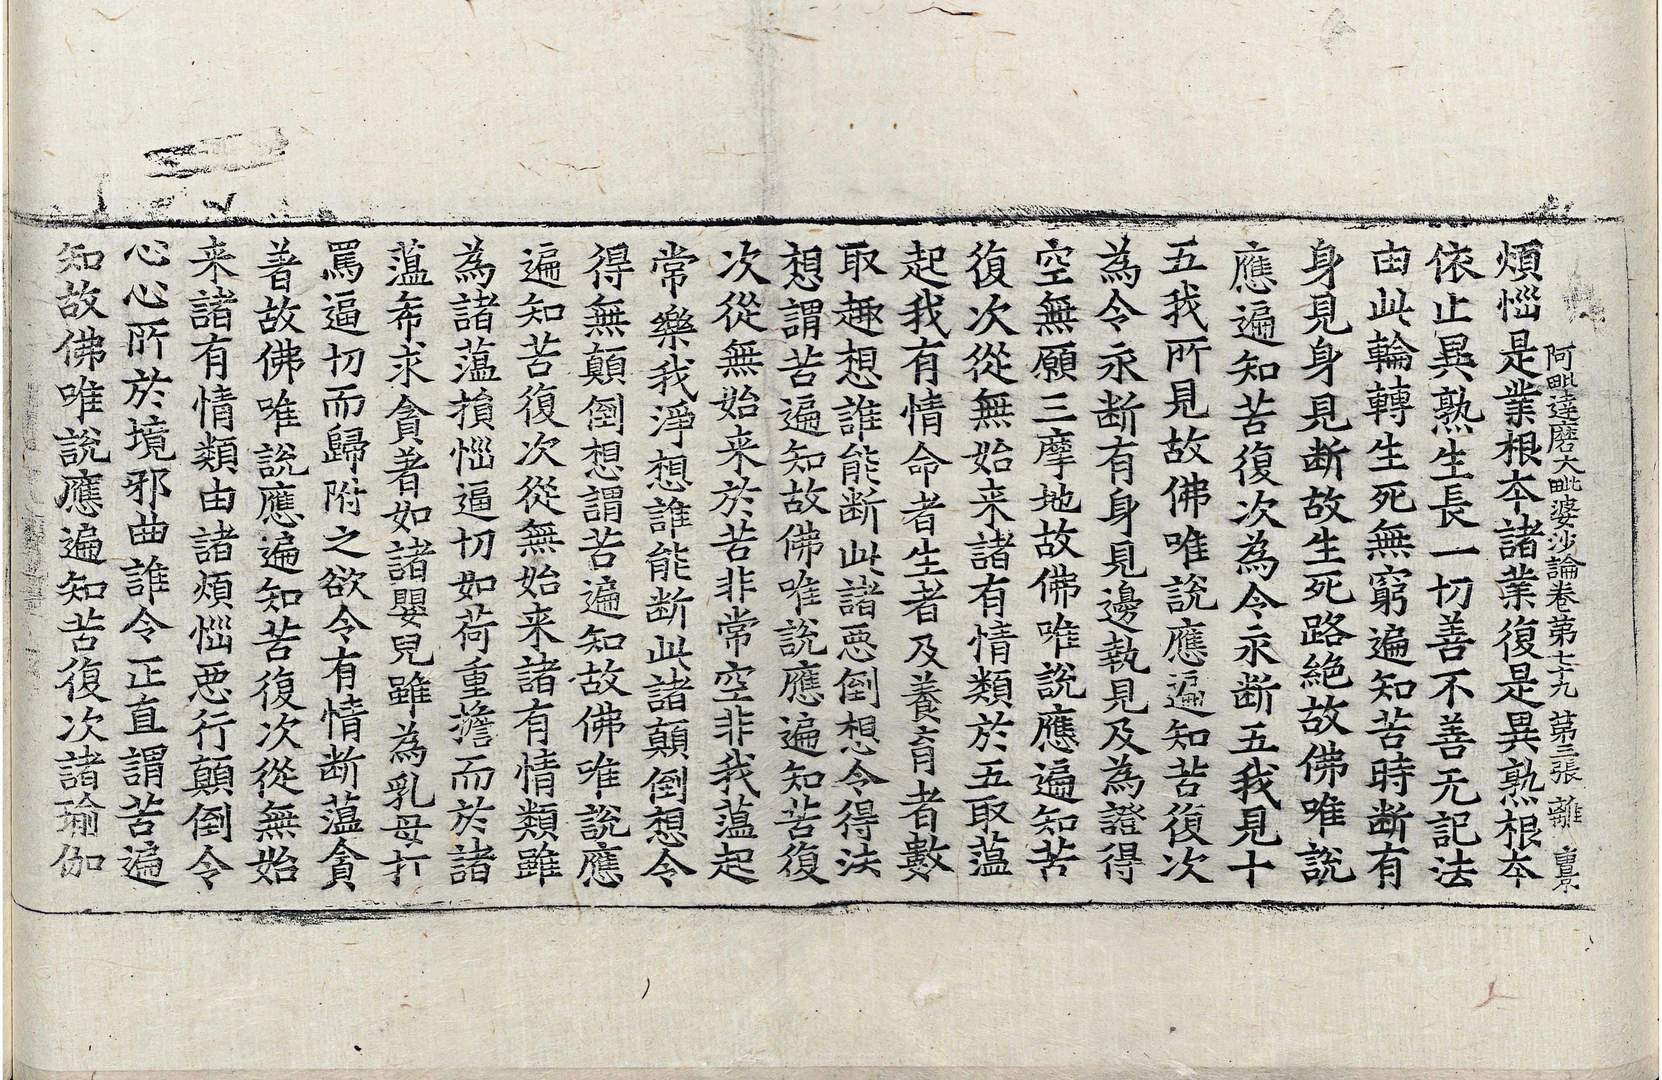 阿毗達磨大毗婆沙論卷第七十九 第三張 離
煩惱是業根夲諸業復是異熟根夲
依止異熟生長一切善不善无記法
由此輪轉生死無窮遍知苦時断有
身見身見断故生死路絶故佛唯說
應遍知苦復次為令永断五我見十
五我所見故佛唯說應遍知苦復次
為令永断有身見邊執見及為證得
空無願三摩地故佛唯說應遍知苦
復次從無始来諸有情類於五取蕰
起我有情命者生者及養育者數
取趣想誰能断此諸惡倒想令得法
想謂苦遍知故佛唯說應遍知苦復
次從無始来於苦非常空非我蕰起
常樂我淨想誰能断此諸顛倒想令
得無顛倒想謂苦遍知故佛唯說應
遍知苦復次從無始来諸有情類雖
為諸蕰損惱逼切如荷重擔而於諸
蕰希求貪著如諸嬰兒雖為乳母打
罵逼切而歸附之欲令有情断蕰貪
著故佛唯說應遍知苦復次從無始
来諸有情類由諸煩惱惡行顛倒令
心心所於境邪曲誰令正直謂苦遍
知故佛唯說應遍知苦復次諸瑜伽